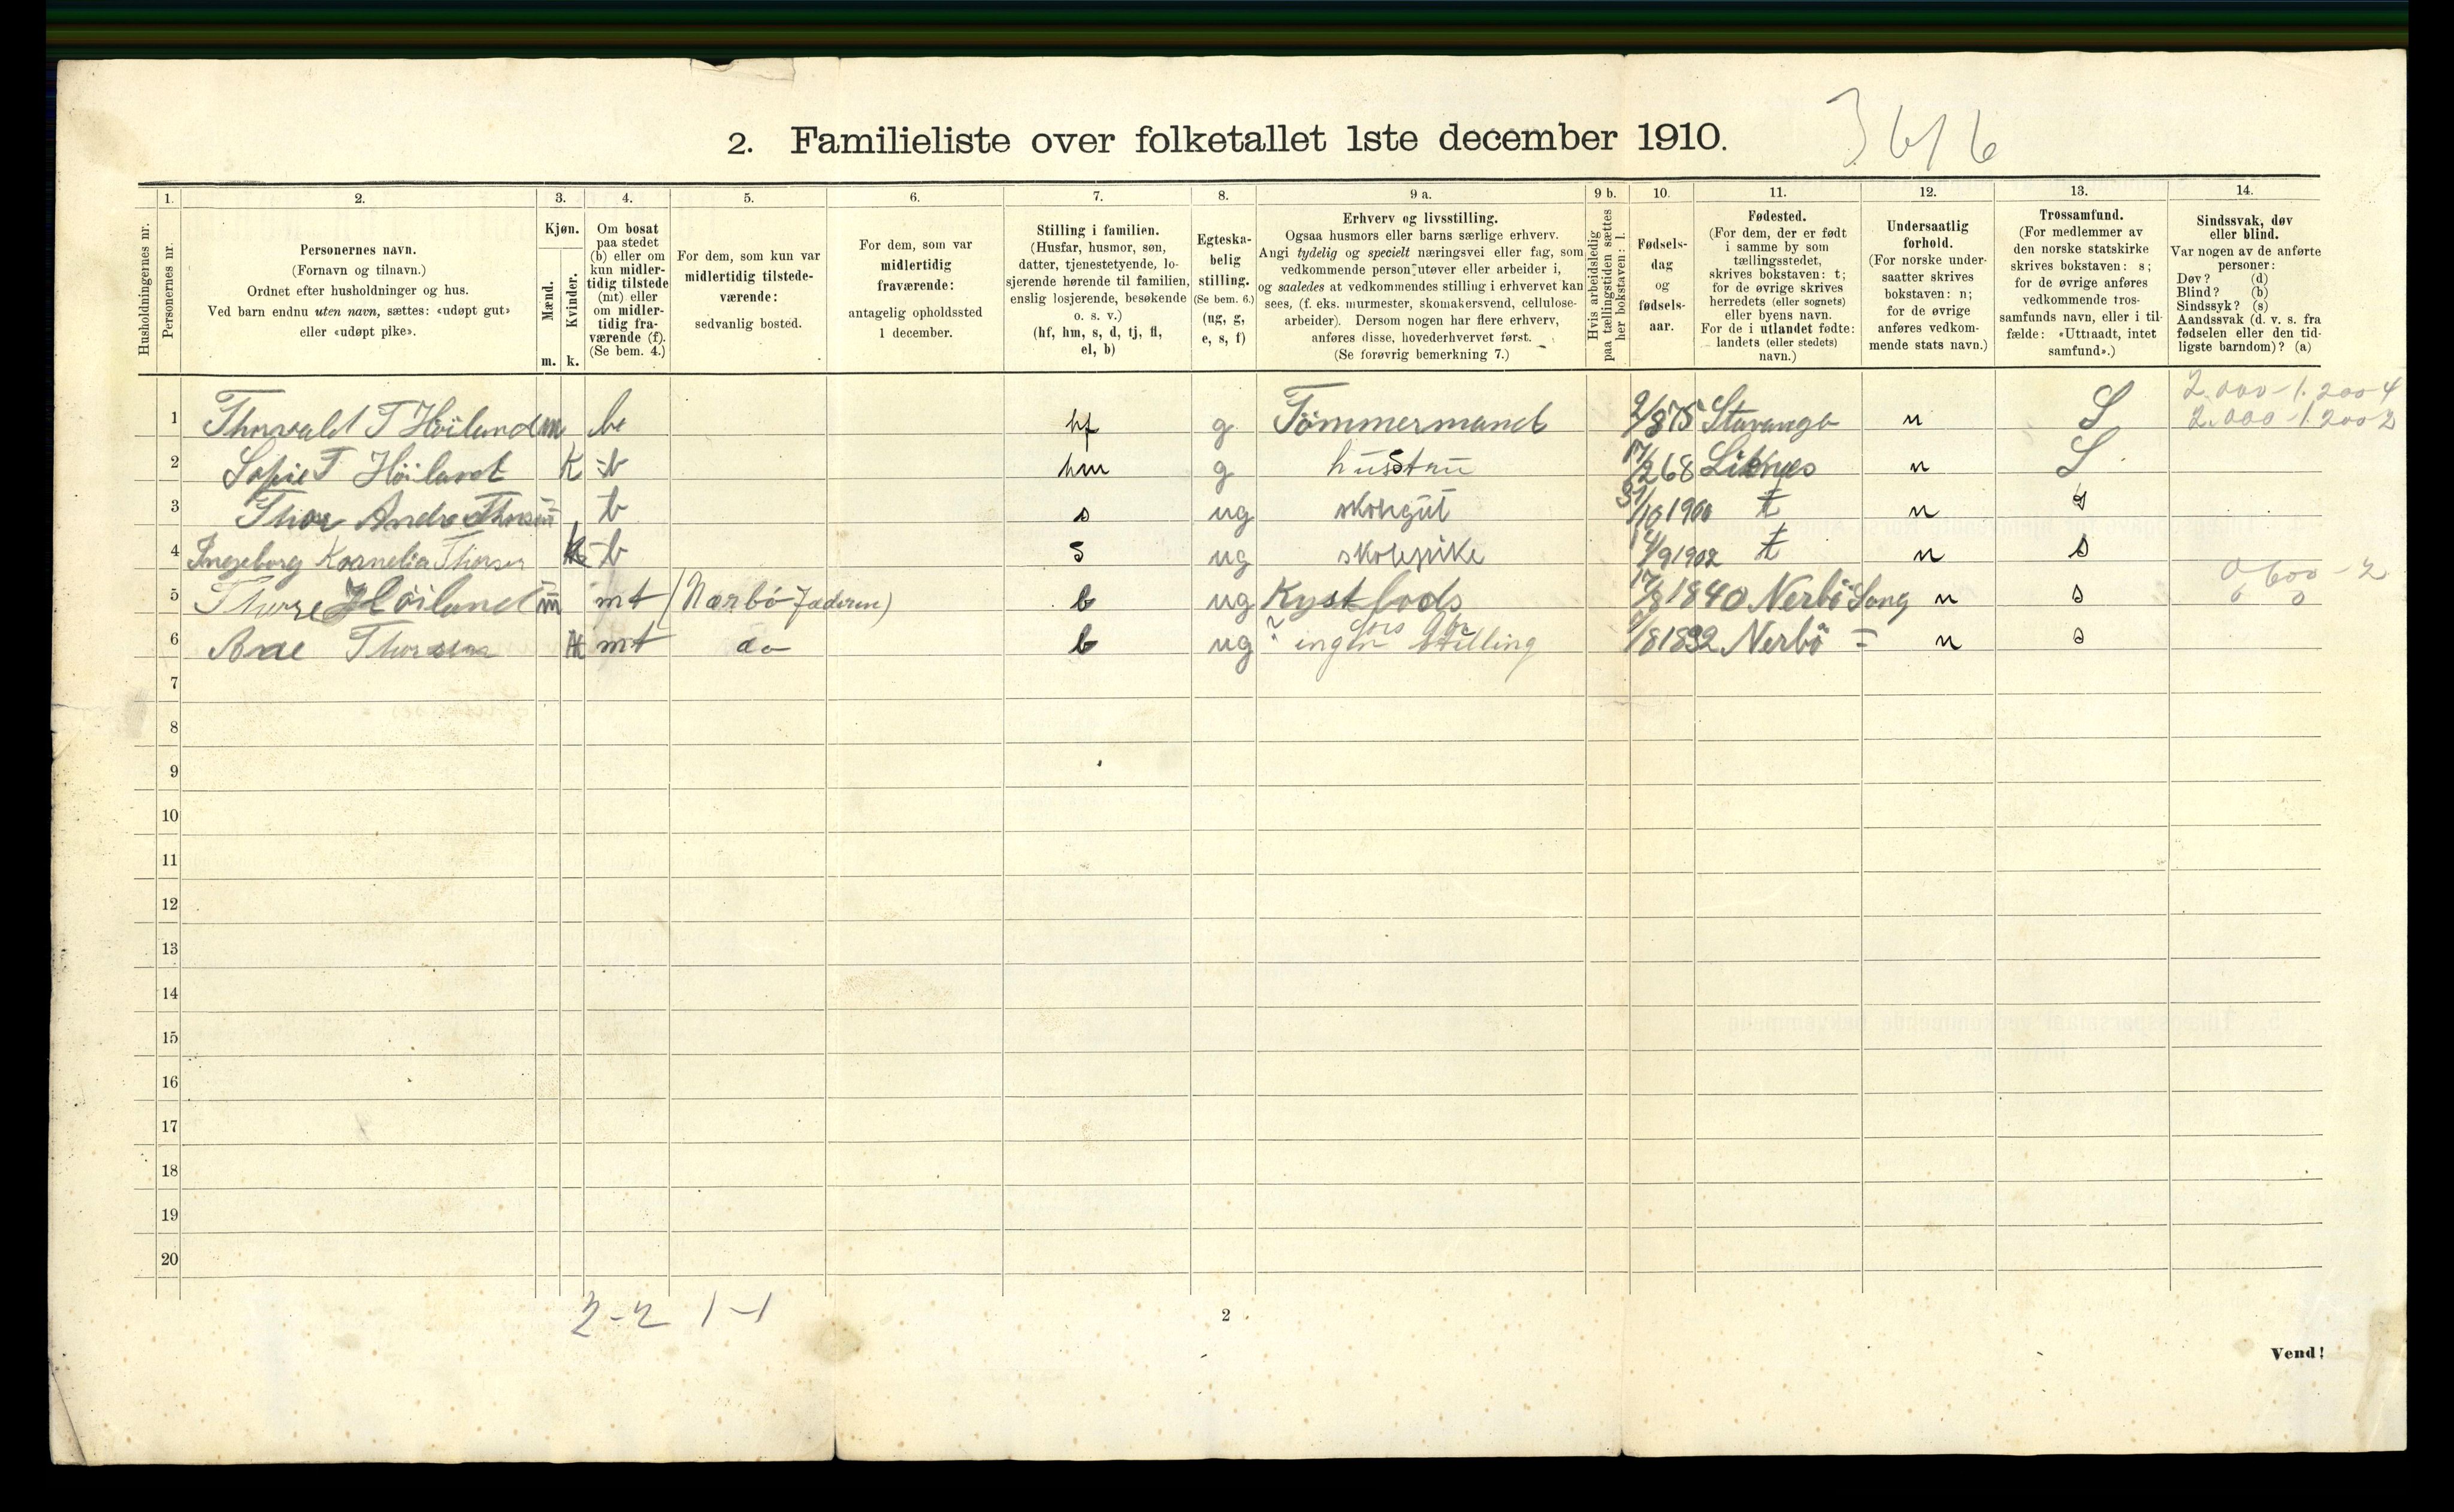 36/6
2. Familieliste over folketallet 1ste december 1910.
Husholdningernes nr.
1. Personernes nr.
2. Personernes navn. (Fornavn og tilnavn.) Ordnet efter husholdninger og hus. Ved barn endnu uten navn, sættes: «udøpt gut» eller «udøpt pike».
3. Kjøn. Mænd. m. Kvinder. k.
4. Om bosat paa stedet (b) eller om kun midlertidig tilstede (mt) eller om midlertidig fraværende (f). (Se bem. 4.)
5. For dem, som kun var midlertidig tilstedeværende: sedvanlig bosted.
6. For dem, som var midlertidig fraværende: antagelig opholdssted 1 december.
7. Stilling i familien. (Husfar, husmor, søn, datter, tjenestetyende, losjerende hørende til familien, enslig losjerende, besøkende o. s. v.) (hf, hm, s, d, tj, fl, el, b)
8. Egteskabelig stilling. (Se bem. 6.) (ug, g, e, s, f)
9 a. Erhverv og livsstilling. Ogsaa husmors eller barns særlige erhverv. Angi tydelig og specielt næringsvei eller fag, som vedkommende person utøver eller arbeider i, og saaledes at vedkommendes stilling i erhvervet kan sees, (f. eks. murmester, skomakersvend, cellulosearbeider). Dersom nogen har flere erhverv, anføres disse, hovederhvervet først. (Se forøvrig bemerkning 7.)
9 b. Hvis arbeidsledig paa tællingstiden sættes her bokstaven: l.
10. Fødselsdag og fødselsaar.
11. Fødested. (For dem, der er født i samme by som tællingsstedet, skrives bokstaven: t; for de øvrige skrives herredets (eller sognets) eller byens navn. For de i utlandet fødte: landets (eller stedets) navn.)
12. Undersaatlig forhold. (For norske undersaatter skrives bokstaven: n; for de øvrige anføres vedkommende stats navn.)
13. Trossamfund. (For medlemmer av den norske statskirke skrives bokstaven: s; for de øvrige anføres vedkommende trossamfunds navn, eller i tilfælde: «Uttraadt, intet samfund».)
14. Sindssvak, døv eller blind. Var nogen av de anførte personer: Døv? (d) Blind? (b) Sindssyk? (s) Aandssvak (d. v. s. fra fødselen eller den tidligste barndom)? (a)
2.000-1.2004
1 Thorvald T Höiland m b hf g Tömmermand 2/8 75 Stavanger n S 2.000-1.2002
2 Sofie T Höiland K b hm g hustru 17/2 68 Liknes n S
3 Thor Andr Thorsen m b s ug skolegut 31/10 1900 t n s
4 Ingeborg Kornelia Thorsen k b S ug skolepike 14/9 1902 t n s
5 Thorre Höiland m mt (Nærbö Jæderen) b ug Kyst lods 17/8 1840 Nerbö Song n s 0.600-2
6 Ane Thorsen k mt do b ug ingen Stilling /8 1892 Nerbö = n s
7
8
9
10
11
12
13
14
15
16
17
18
19
20
2-2 1-1
2
Vend!